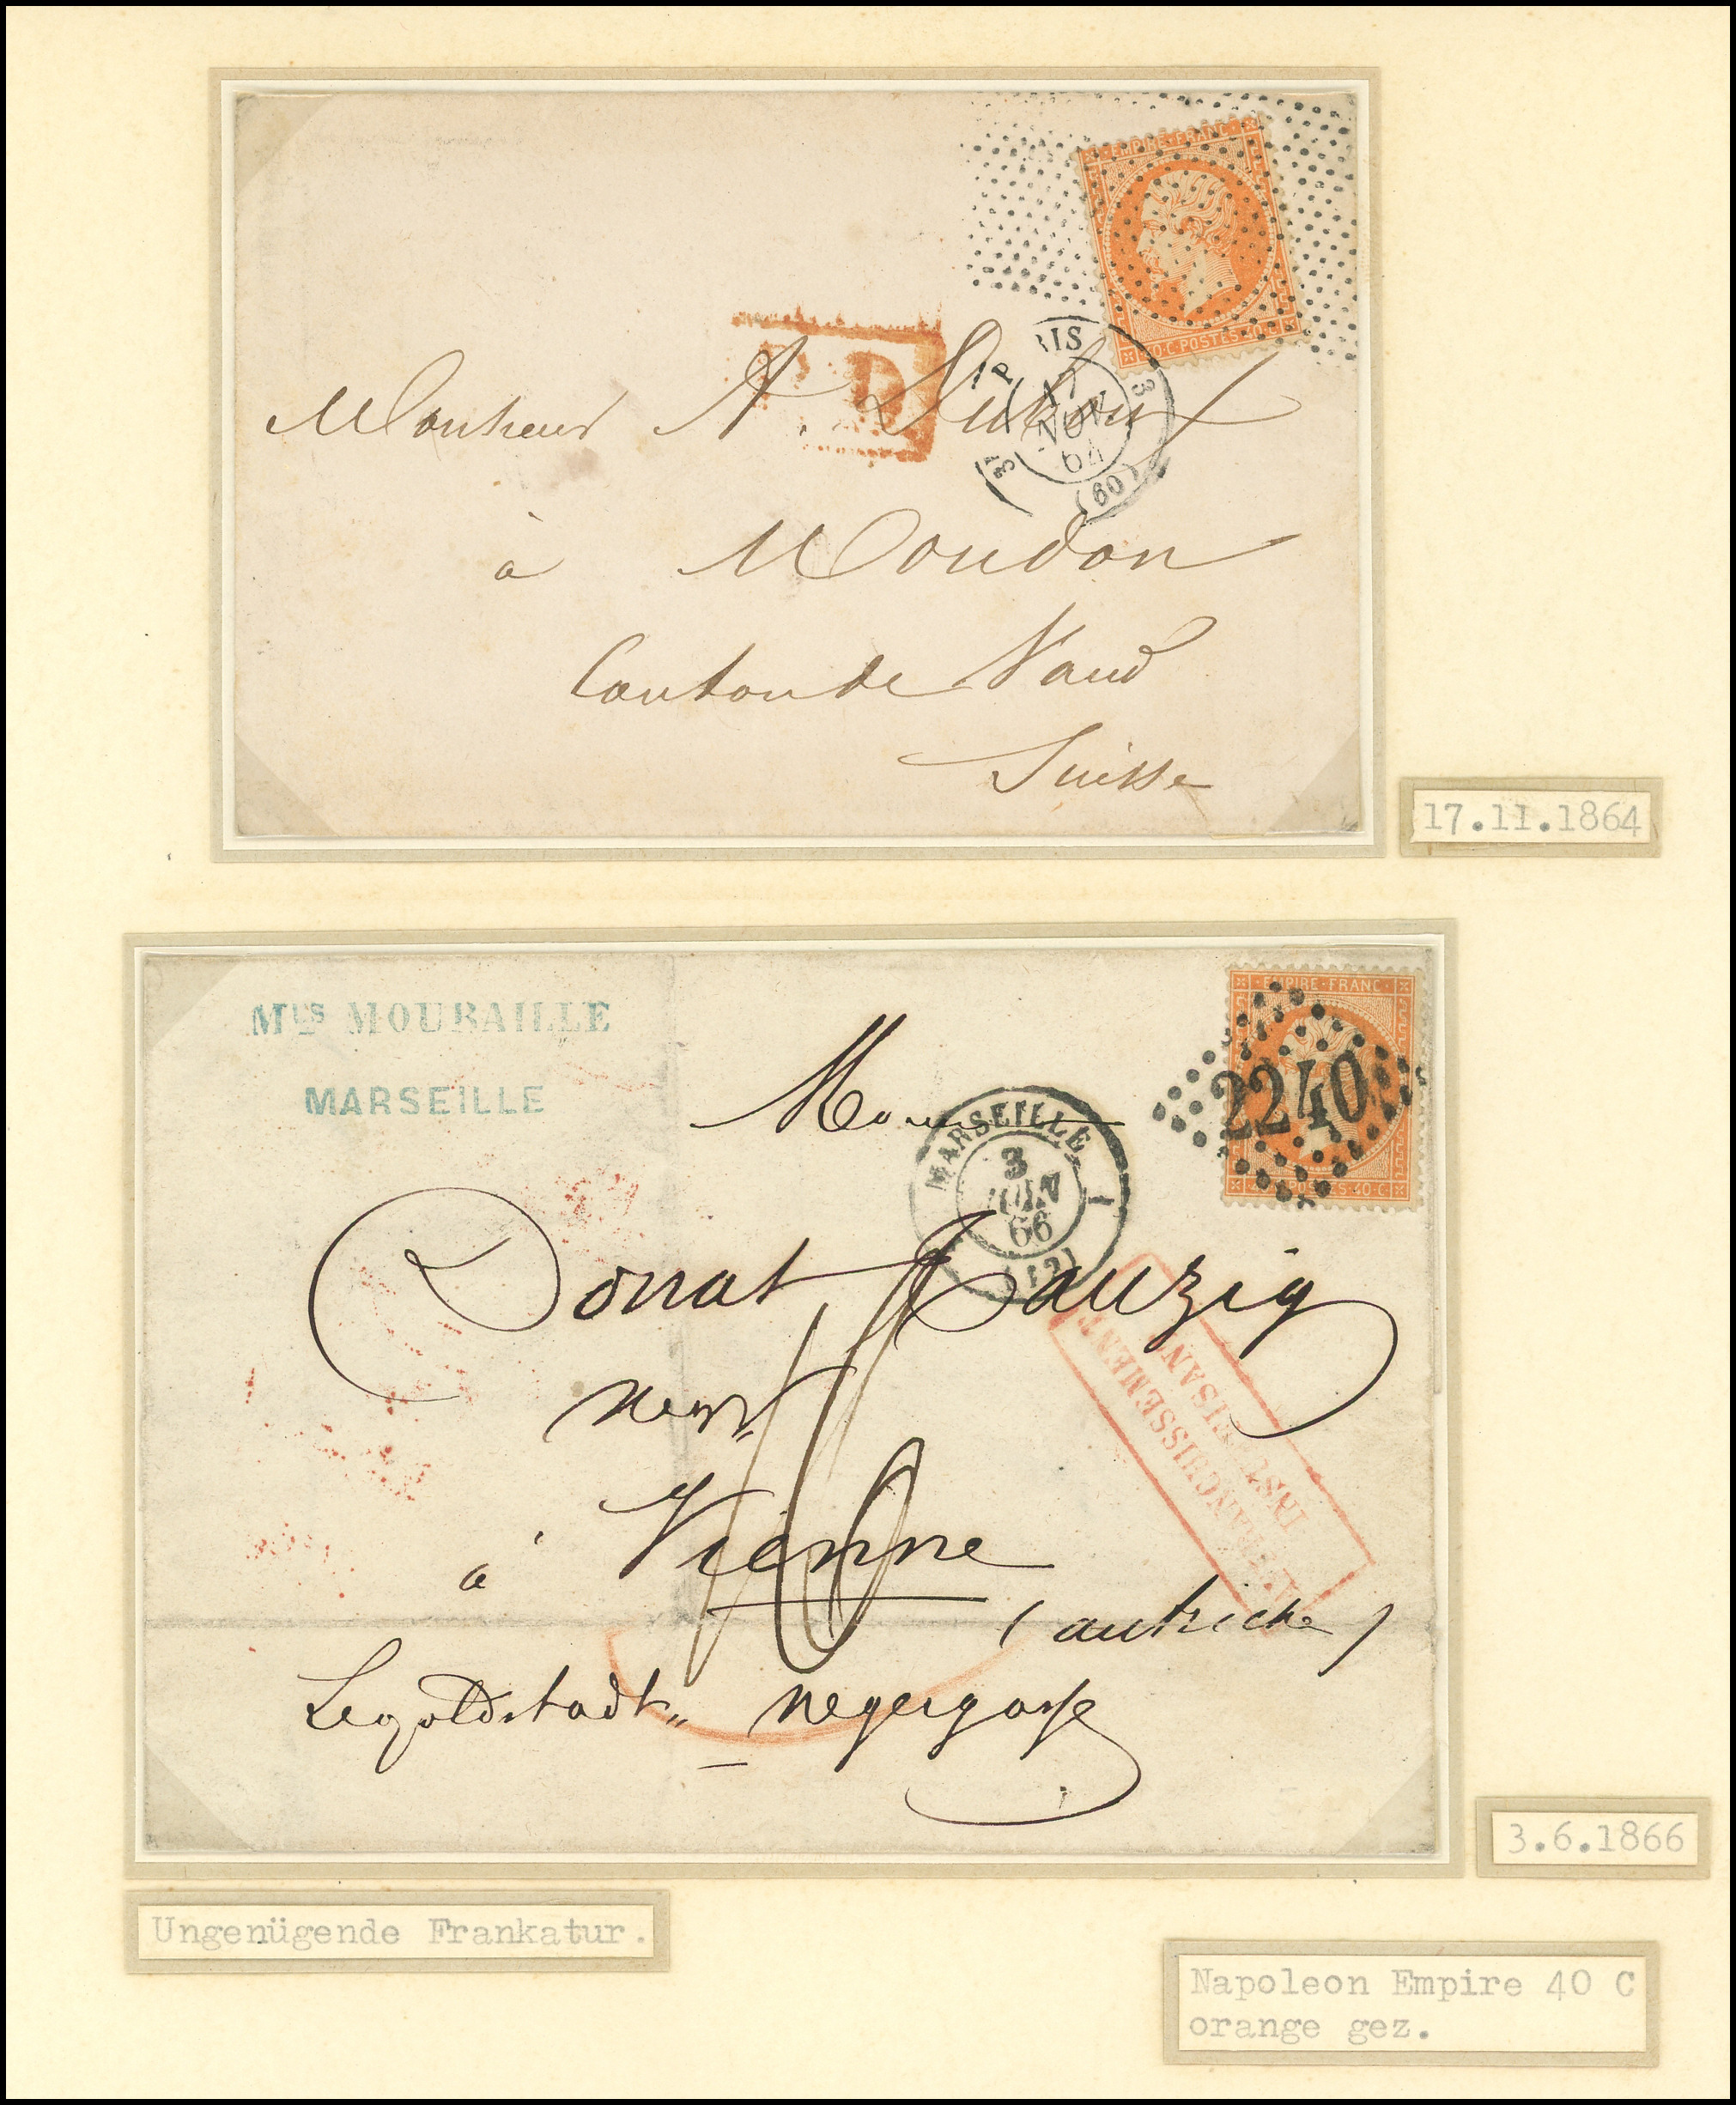 EMPIRE · FRANC
40·C·POSTES·40·C
P.D
PARIS
3
17
NOV
64
(60)
Monsieur A. Dubour
à Moudon
Canton de Vaud
Suisse
17.11.1864
Mls MOURAILLE
MARSEILLE
EMPIRE · FRANC
2240
POSTES·40·C
MARSEILLE
1
3
JUIN
66
(12)
Monsieur
Donat Zauzig
à Vienne
(autriche)
Leopoldstadt„ negergasse
AFFRANCHISSEMENT
INSUFFISANT
3.6.1866
Ungenügende Frankatur.
Napoleon Empire 40 C
orange gez.